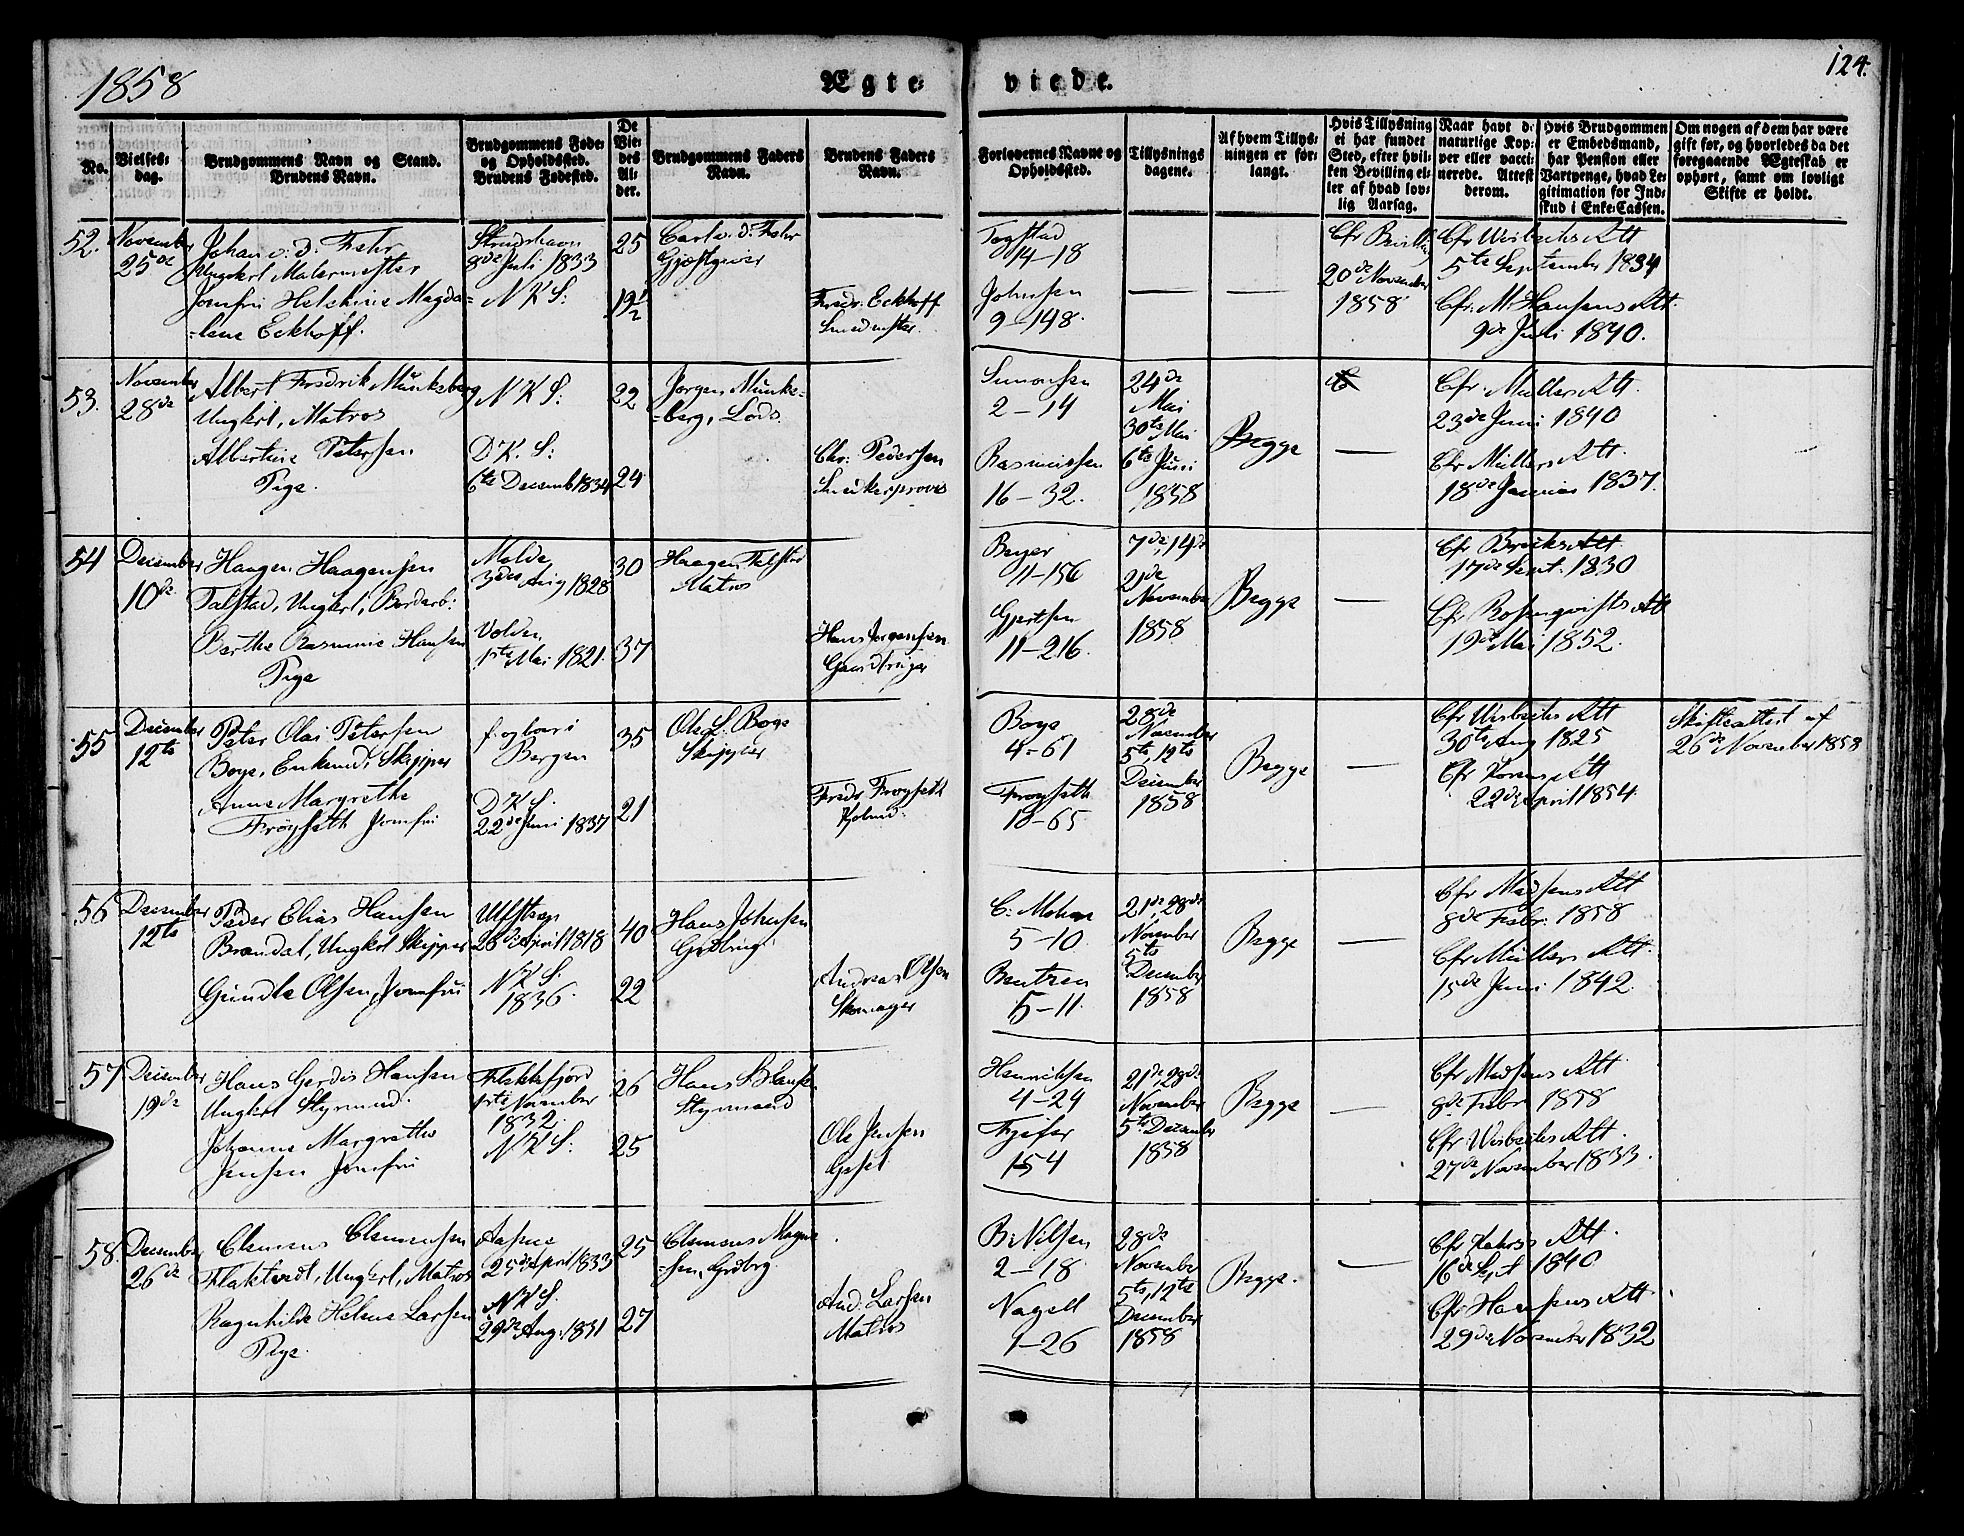 1858
Ægte-
viede.
124.
No.
Vielses-
dag.
Brudgommens Navn og Stand.
Brudens Navn.
Brudgommens Føde-
og Opholdssted.
Brudens Fødested.
De
Vie-
des
Al-
der.
Brudgommens Faders
Navn.
Brudens Faders
Navn.
Forlovernes Navne og
Opholdssted.
Tillysnings
dagene.
Af hvem Tillys-
ningen er for-
langt.
Hvis Tillysning
ei har fundet
Sted, efter hvil-
ken Bevilling el-
ler af hvad lov-
lig Aarsag.
Naar havt de
naturlige Kop-
per eller vacci-
nerede. Attest
derom.
Hvis Brudgommen
er Embedsmand,
har Pension eller
Vartpenge, hvad Le-
gitimation for Ind-
skud i Enke-Cassen.
Om nogen af dem har være
gift før, og hvorledes da det
foregaaende Ægteskab er
ophørt, samt om lovligt
Skifte er holdt.
52.
November
25de
Johan v. d. Fehr
Ungkrl, Malermester
Jomfru Helchine Magda-
-lene Eckhoff.
8de Juli 1833
N K S:
25
19½
Carl v. d. Fehr
Gjæstgiver
Fredr: Eckhoff
Smedmester
Togstad
14-18
Johnsen
9-148.
Cfr Bevilling
20de November
1858
Cfr Wisbechs Att
5te September 1834
Cfr. M. Hansens Att.
9de Juli 1840.
53.
November
28de
Albert Fredrik Munkeberg
Ungkrl, Matros
Albertine Petersen
Pige.
N K S:
D. K. S:
6te Decemb 1834
22
24
Jørgen Munke-
-berg, Lods
Chr. Pedersen
Simonsen
2-14
Rasmussen
16-32.
24de
Mai
30te Mai
6te Juni
1858
Begge
Cfr Müllers Att.
23de Juni 1840
Cfr Müllers Att.
18de Januar 1837.
54
December
10de
Haagen Haagensen
Talstad, Ungkrl, Bordarb:
Berthe Rasmine Hansen
Pige
Molde
3die Aug 1828
Volden
1ste Mai 1821.
30
37
Haagen Talstad
Matros
Hans Jørgensen
Beyer
11-156
Gjertsen
11-216.
7de, 14de
21de
November
1858
Begge
Cfr Bricks Att.
17de Sept. 1830
Cfr Rosenqvists Att
19de Mai 1852.
55
December
12te
Peter Olai Petersen
Boye, Enkemd, Skipper
Anne Margrethe
Frøyseth Jomfru
f. og boer i
Bergen
D K S.
22de Juni 1837
35
21
Ole L. Boye
Skipper
Fredr Frøyseth
Boye
4-61
Frøyseth
10-65
28de
November
5te, 12te
December
1858
Begge
Cfr Wisbechs Att
30te Aug 1825
22de April 1854.
Skifteattest af
26de November 1858
56
December
12te
Peder Elias Hansen
Brandal, Ungkrl Skipper
Gundle Olsen, Jomfru
Ulfsteen
28de April 1818
N K S.
1836.
40
22
Hans Johnsen
Gjødbrug
Andreas Olsen
Skomager
C. Mohn
5-10.
Bentzen
5-11.
21de, 28de
November
5te
December
1858
Begge
Cfr Madsens Att
8de Febr: 1858
Cfr Müllers Att.
15de Juni 1842.
57
December
19de
Hans Gerdis Hansen
Ungkrl Styrmand.
Johanne Margrethe
Jensen Jomfru
Flekkefjord
1ste November
1832.
N K S.
26
25
Styrmand
Ole Jensen
Henrichsen
4-24
154
21de, 28de
November
5te December
1858
Begge
Cfr Madsens Att
8de Febr 1858
Cfr: Wisbechs Att.
27de November 1833.
58.
December
26de
26de
Clemens Clemensen
Flaktvedt, Ungkrl, Matros
Ragnhilde Helene Larsen
Pige.
25de April 1833
N K S.
29de Aug: 1831
25
27
Clemens Magne
-sen, Grdbrg.
And: Larsen
Matros
B. Nilsen
2-18
Nagell
1-26
28de
November
5te, 12te
December
1858
Begge.
16de Sept 1840
Cfr Hansens Att.
29de November 1832